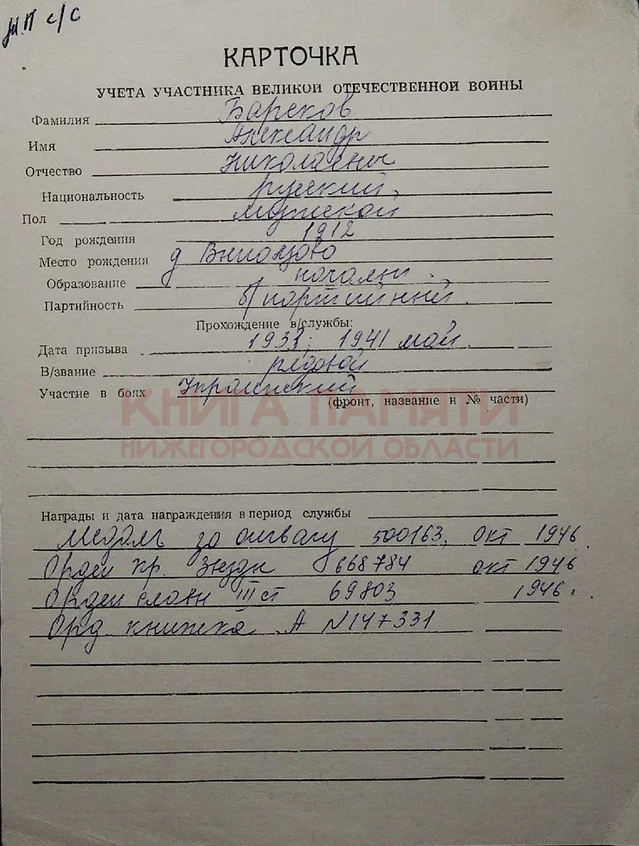 М.П с/с
КАРТОЧКА
УЧЕТА УЧАСТНИКА ВЕЛИКОЙ ОТЕЧЕСТВЕННОЙ ВОЙНЫ
Фамилия Барсков
Имя Александр
Отчество Николаевич
Национальность русский
Пол мужской
Год рождения 1912
Место рождения д
Образование началн.
Партийность б/партийный.
Прохождение в/службы:
Дата призыва 1941 май.
В/звание рядовой
Участие в боях Украинский
(фронт, название и № части)
КНИГА ПАМЯТИ
НИЖЕГОРОДСКОЙ ОБЛАСТИ
Награды и дата награждения в период службы
Медаль за отвагу 500163. окт 1946.
Орден Кр. Звезды 668784 окт 1946
Орден славы III ст 69803 1946.
Орд книжка А №147331